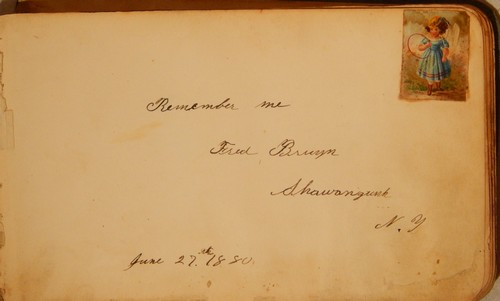 Remember me
Fred Bruyn
Shawangunk
N. Y
June 27.th 1880.